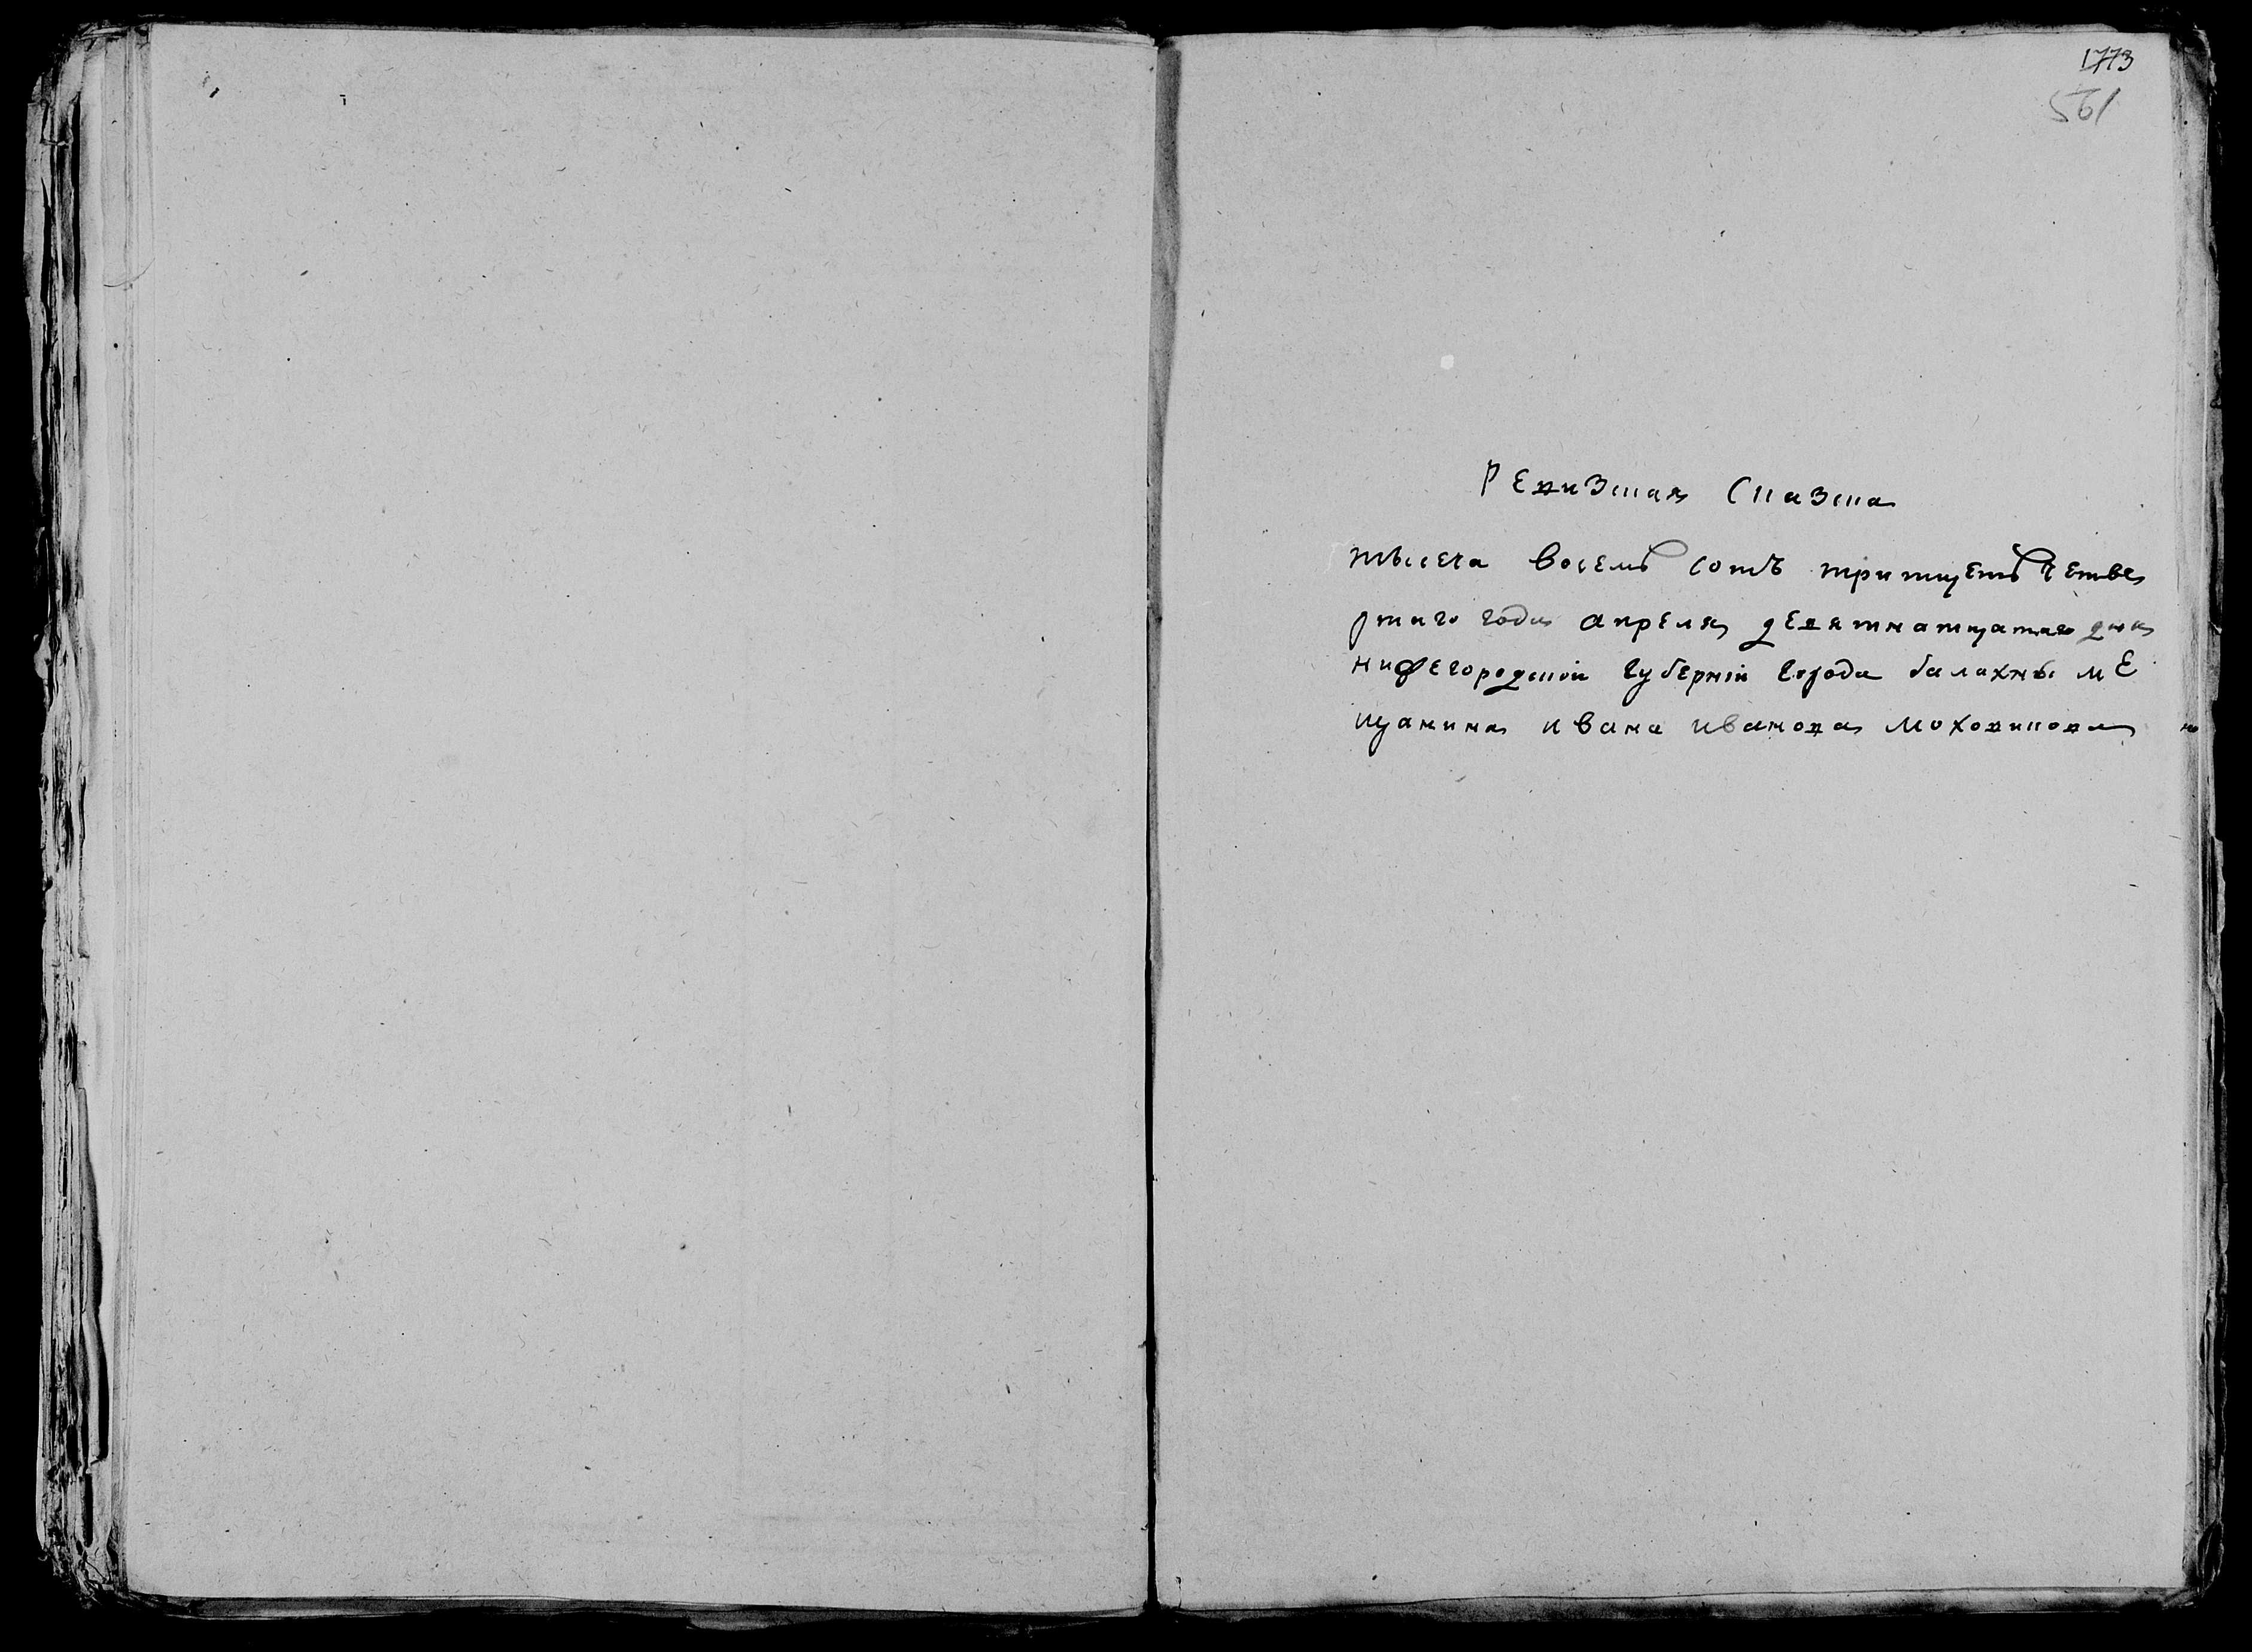 1773
561
Ревизская Сказка
тысеча восемь сотъ притцеть четве
ртаго года апреля девятнатцатаго дня
нижегородской губернїи города балахны ме
щанина ивана иванова моховикова